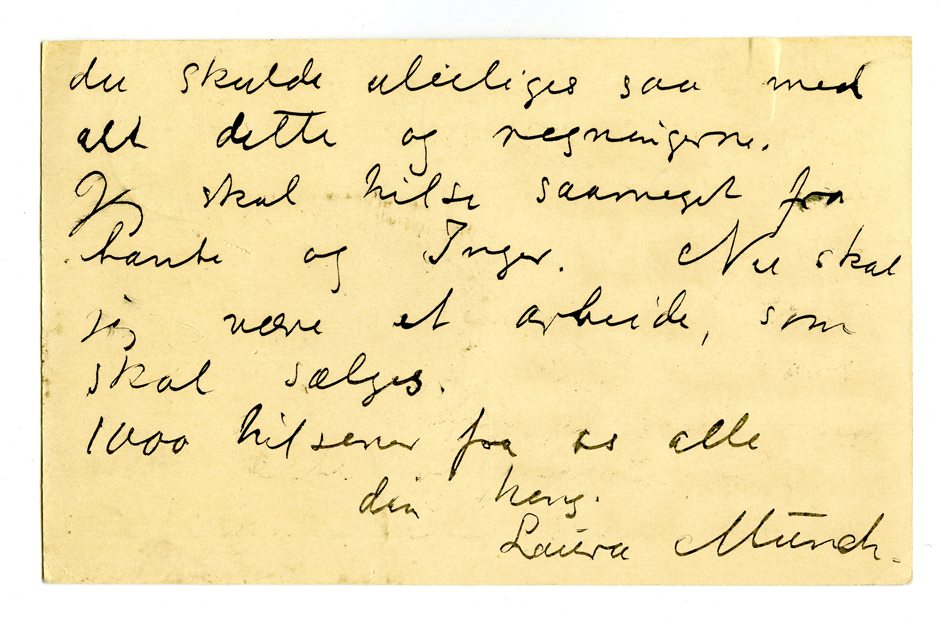 du skulde uleiliges saa med
alt dette og regningerne.
Jeg skal hilse saameget fra
tante og Inger. Nu skal
jeg være et arbeide, som
skal sælges.
1000 hilsener fra os alle
din heng.
Laura Munch.